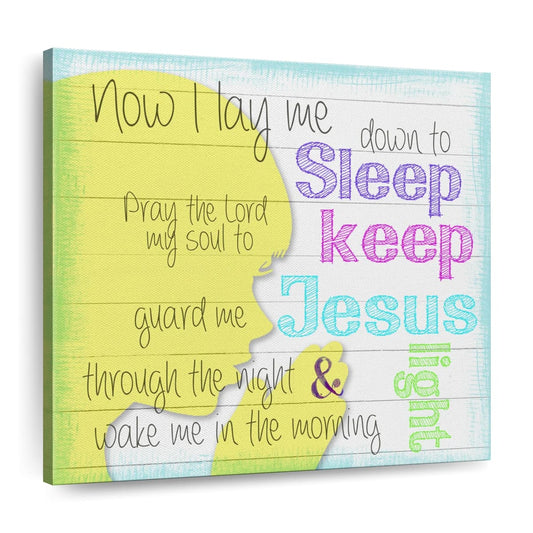 Now I lay me
down to
Sleep
Pray the Lord
my soul to
keep
guard me
Jesus
through the night &
light
wake me in the morning